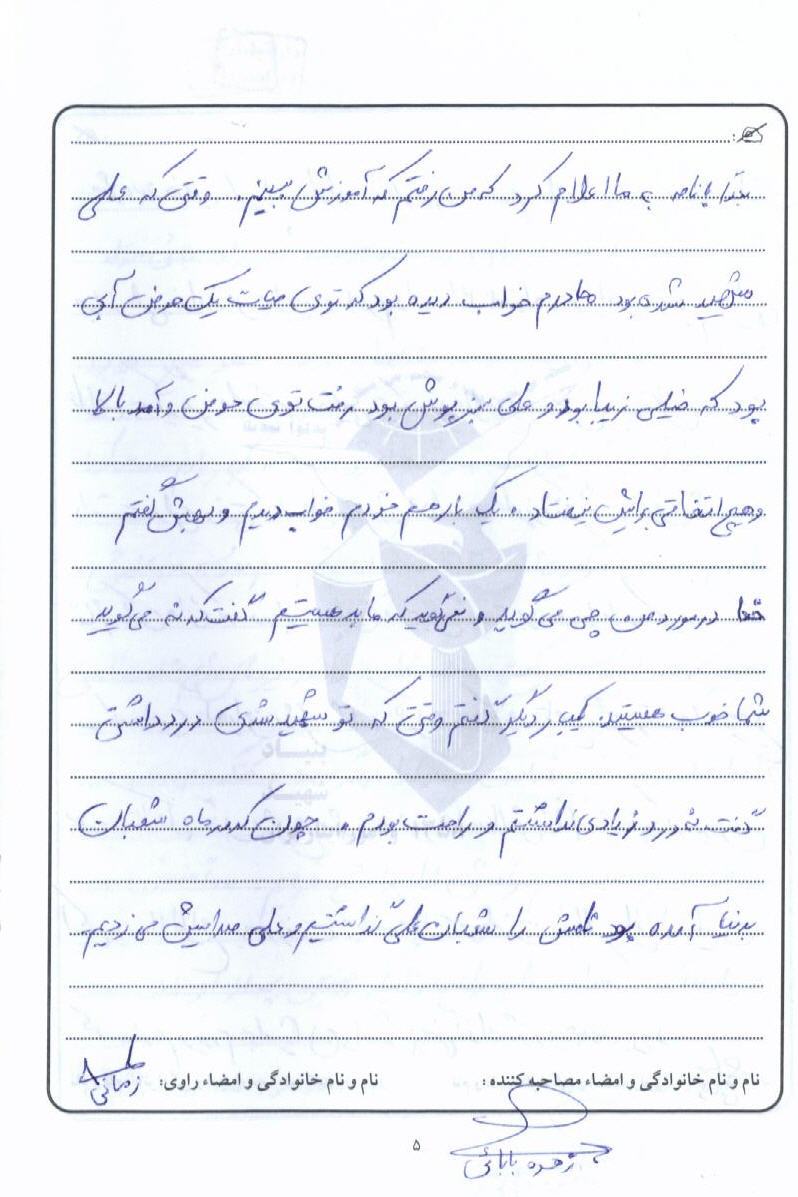 بعداً با نامه به ما اعلام کرد که من رفتم که آموزش ببینم. وقتی که علی
شهید شده بود مادرم خواب دیده بود که توی حیاط یک حوض آبی
بود که خیلی زیبا بود و علی سبزپوش بود رفت توی حوض و آمد بالا
و هیچ اتفاقی برایش نیفتاد. یک بار هم خودم خواب دیدم و بهش گفتم
شما در مورد من چی می‌گویید و نمی‌گویید که ما بد هستیم گفت که نه می‌گویند
شما خوب هستید. یکبار دیگر گفتم وقتی که تو شهید شدی درد داشتی
گفت نه درد زیادی نداشتم و راحت بودم. چون که در ماه شعبان
بدنیا آمده بود نامش را شعبان علی گذاشتیم و علی صدایش می‌زدیم.
نام و نام خانوادگی و امضاء مصاحبه کننده : نام و نام خانوادگی و امضاء راوی: زمانی
زهره بابائی
۵
بنیاد
شهید